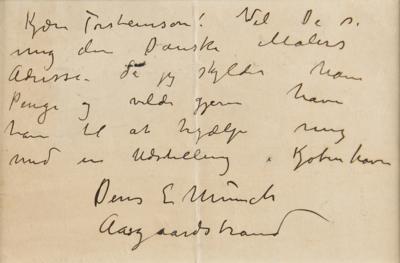 Kjære Torsteinson! Vil De si
mig den Danske Malers
Adresse. Da jeg skylder ham
Penge og vilde gjerne have
ham til at hjælpe mig
med en Udstilling i Kjøbenhavn
Deres E Munch
Aasgaardstrand